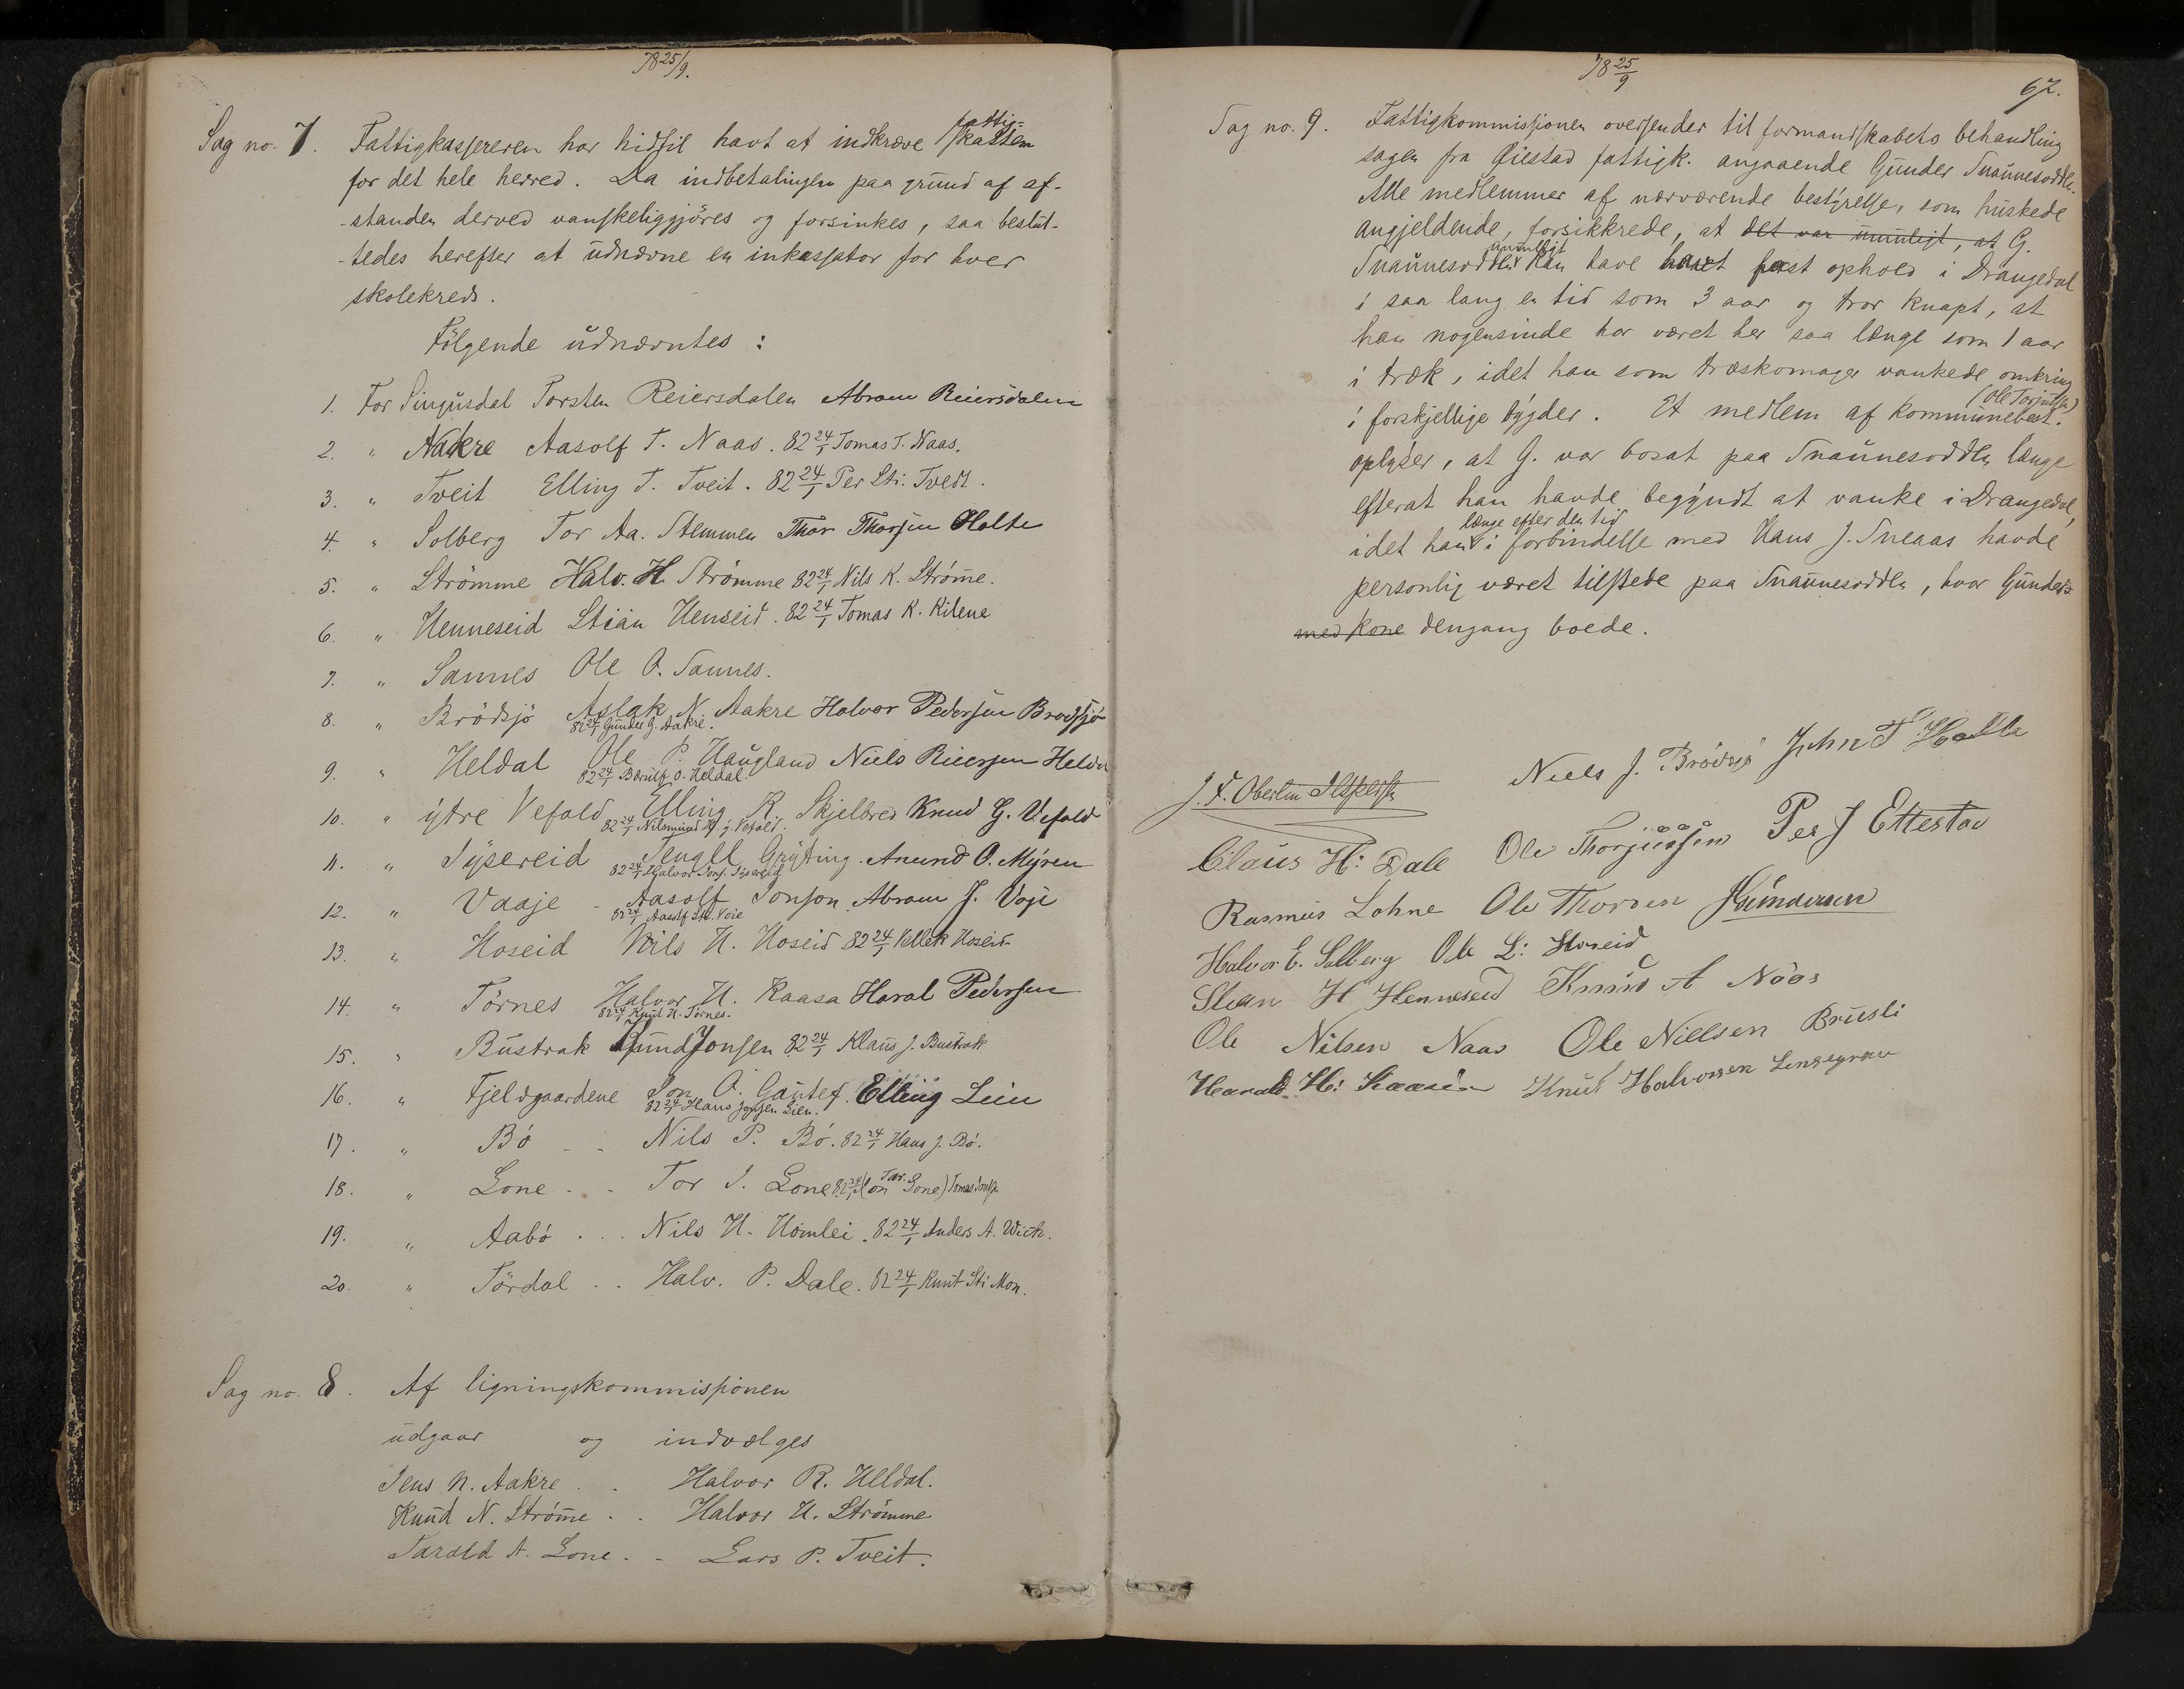 78 25/9.
Sag no. 7. Fattigkassereren har hidtil havt at indkræve fattig-skatten
for det hele herred. Da indbetalingen paa grund af af-
-standen derved vanskeliggjöres og forsinkes, saa beslut-
-tedes herefter at udnævne en inkassator for hver
skolekreds.
Fölgende udnævntes:
1. For Singusdal Torsten Reiersdalen Abram Reiersdalen
2. " Aakre Aasolf T. Naas. 82 24/1 Tomas T. Naas.
3. " Tveit Elling T. Tveit. 82 24/1 Per Sti. Tvedt.
4. " Solberg Tor Aa. Stemmen Thor Thorsen Holte
5. " Strömme Halv. H. Strömme 82 24/1 Nils K. Strøme.
6. " Henneseid Stian Henseid. 82 24/1 Tomas K. Kilene
7. " Sannes Ole O. Sannes.
8. " Brödsjö Aslak N. Aakre Halvor Pedersen Brodsjö
82 24/1 Gunder G. Aakre.
9. " Heldal Ole P. Haugland Niels Rieersen Heldal
82 24/1 O. Heldal
10. " ytre Vefald Elling K. Skjelbred Knud G. Vefald
82 24/1 y. Vefald.
11. " Sysereid Tengel Gryting. Anund O. Myren
82 24/1 Halvor Tors. Sysereid
12. " Vaaje - Aasolf Jonson Abram J. Voje
82 24/1 Aasolf Voie
13. " Hoseid Nils H. Hoseid 82 24/1 Vellek Hoseid
14. " Törnes Halvor H. Kaasa Haral Pedersen
82 24/1 Knut H. Törnes.
15. " Bustrak Gund Jonsen 82 24/1 Klaus J. Bustrak
16. " Fjeldgaardene Jon O. Gautef. Elling Lien
82 24/1 Hans Jonsen Lien.
17. " Bö - - Nils P. Bö. 82 24/1 Hans J. Bö.
18. " Lone - - Tor J. Lone 82 24/1 (Jon Tar. Lone) Tomas Jonsen
19. " Aabö . . . Nils H. Homlei. 82 24/1 Anders A.
20. " Tördal . . Halv. P. Dale. 82 24/1 Knut Sti Mon.
Sag no. 8. Af ligningskommissionen
udgaar og indvælges
Jens N. Aakre . . Halvor R. Heldal.
Knud N. Strøme . . Halvor H. Strömme
Tarald A. Lone. - Lars P. Tveit.
78 25/9
67.
Sag no. 9. Fattigkommissionen oversender til formandskabets behandling
sagen fra Öiestad fattigk. angaaende Gunder Snaunesodden.
Alle medlemmer af nærværende bestyrelse, som huskede
angjeldende, forsikkrede, at det var umuligt, at G.
Snaunesodden umuligt kan have havt fast ophold i Drangedal
i saa lang en tid som 3 aar og tror knapt, at
han nogensinde har været her saa længe som 1 aar
i træk, idet han som træskomager vankede omkring
i forskjellige bygder. Et medlem af kommunebest. (Ole Torjussen)
oplyser, at G. var bosat paa Snaunesodden længe
efterat han havde begyndt at vanke i Drangedal,
idet han længe efter den tid i forbindelse med Hans J. Sneaas havde
personlig været tilstede paa Snaunesodden, hvor Gunder
med kone dengang boede.
J. F. Oberlin Niels J. Brödsjö John T Holte
Claus H: Dale Ole Thorjussen Per J Ettestad
Rasmus Lohne Ole Thorsen
Halvor E. Solberg Ole L: Hoseid
Stian H Henneseid Knud A Naas
Ole Nilsen Naas Ole Nielsen Brusli
Harald H: Kaasa Knut Halvorsen